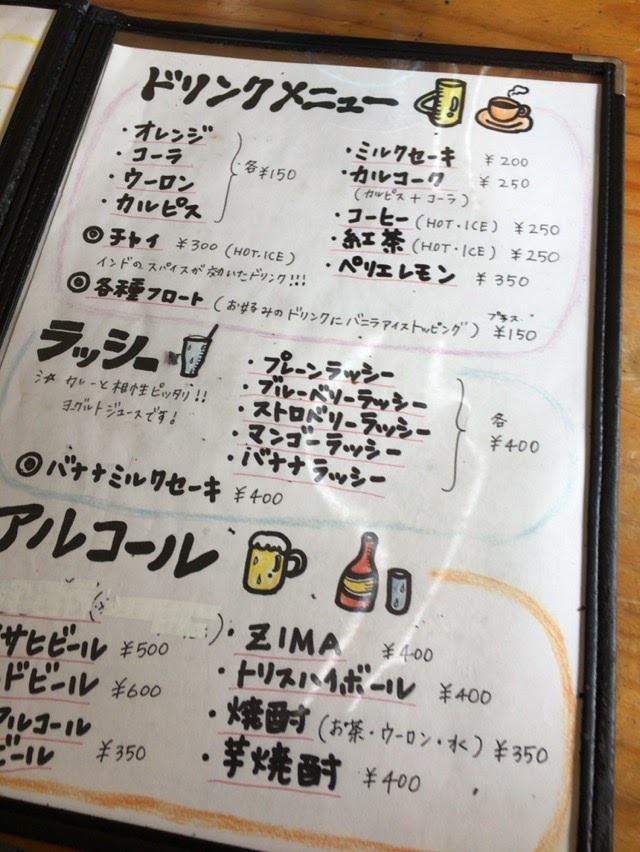 ドリンクメニュー
・オレンジ
・コーラ
・ウーロン
・カルピス
各¥150
◎チャイ ¥300 (HOT・ICE)
インドのスパイスが効いたドリンク!!!
・ミルクセーキ ¥200
・カルコーク ¥250
(カルピス+コーラ)
・コーヒー (HOT・ICE) ¥250
・紅茶 (HOT・ICE) ¥250
・ペリエレモン ¥350
◎各種フロート (お好みのドリンクにバニラアイストッピング) プラス ¥150
ラッシー
※カレーと相性ピッタリ!!
ヨーグルトジュースです!
・プレーンラッシー
・ブルーベリーラッシー
・ストロベリーラッシー
・マンゴーラッシー
・バナナラッシー
各
¥400
◎バナナミルクセーキ ¥400
アルコール
サヒビール ¥500
ドビール ¥600
アルコール
ビール ¥350
・ZIMA ¥400
・トリスハイボール ¥400
・焼酎 (お茶・ウーロン・水) ¥350
・芋焼酎 ¥400